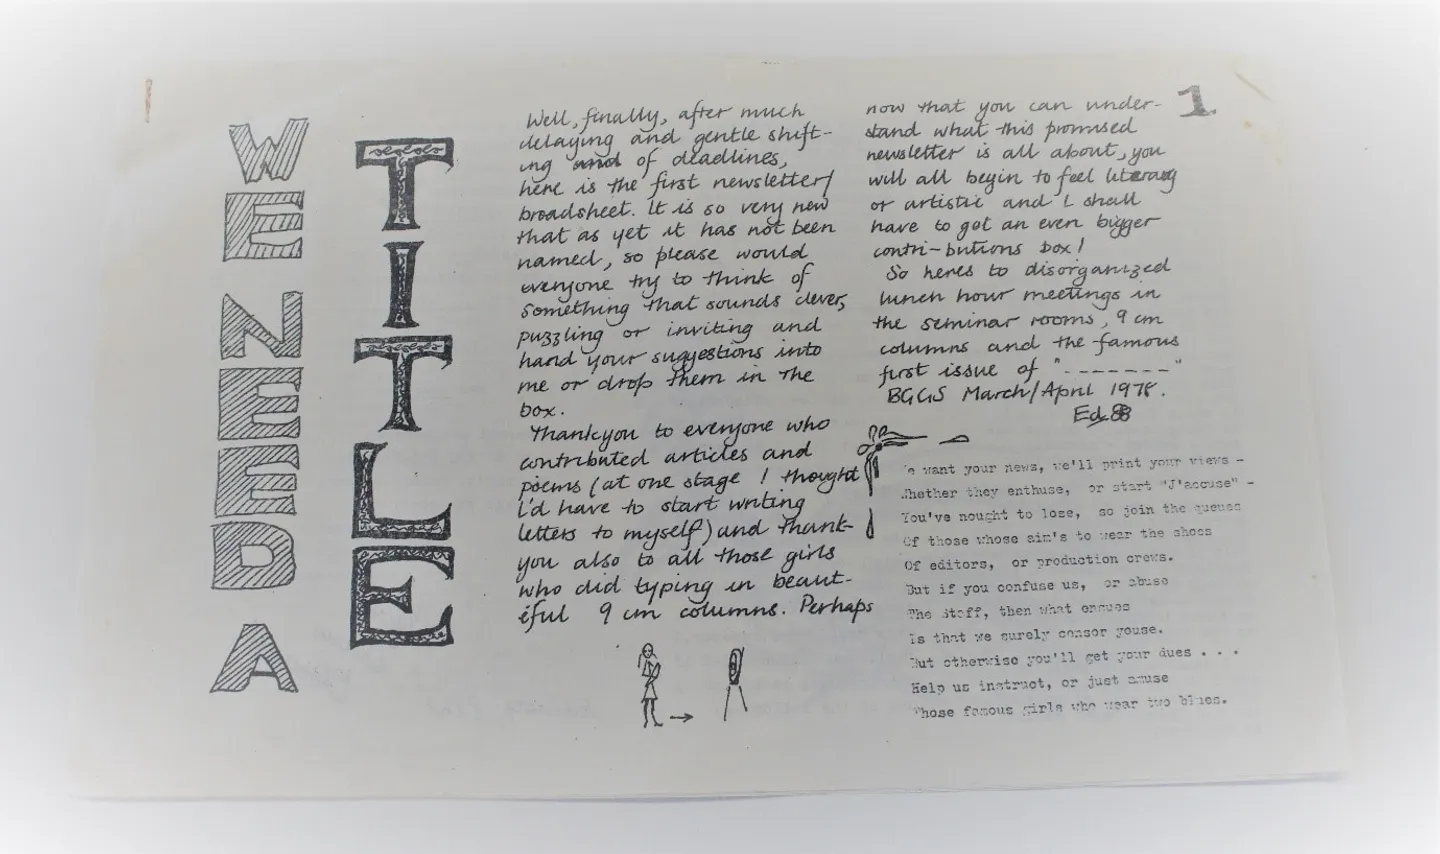 WE NEED A
TITLE
Well, finally, after much
delaying and gentle shift-
ing and of deadlines,
here is the first newsletter/
broadsheet. It is so very new
that as yet it has not been
named, so please would
everyone try to think of
something that sounds clever,
puzzling or inviting and
hand your suggestions into
me or drop them in the
box.
Thankyou to everyone who
contributed articles and
poems (at one stage I thought
I'd have to start writing
letters to myself) and thank-
you also to all those girls
who did typing in beaut-
iful 9 cm columns. Perhaps
1
now that you can under-
stand what this promised
newsletter is all about, you
will all begin to feel literary
or artistic and I shall
have to get an even bigger
contri-butions box!
So heres to disorganized
lunch hour meetings in
the seminar rooms, 9 cm
columns and the famous
first issue of "-------"
BGGS March/April 1978.
Ed.
We want your news, we'll print your views -
Whether they enthuse, or start "J'accuse" -
You've nought to lose, so join the queues
Of those whose aim's to wear the shoes
Of editors, or production crews.
But if you confuse us, or abuse
The staff, then what ensues
Is that we surely censor youse.
But otherwise you'll get your dues . . .
Help us instruct, or just amuse
Those famous girls who wear two blues.